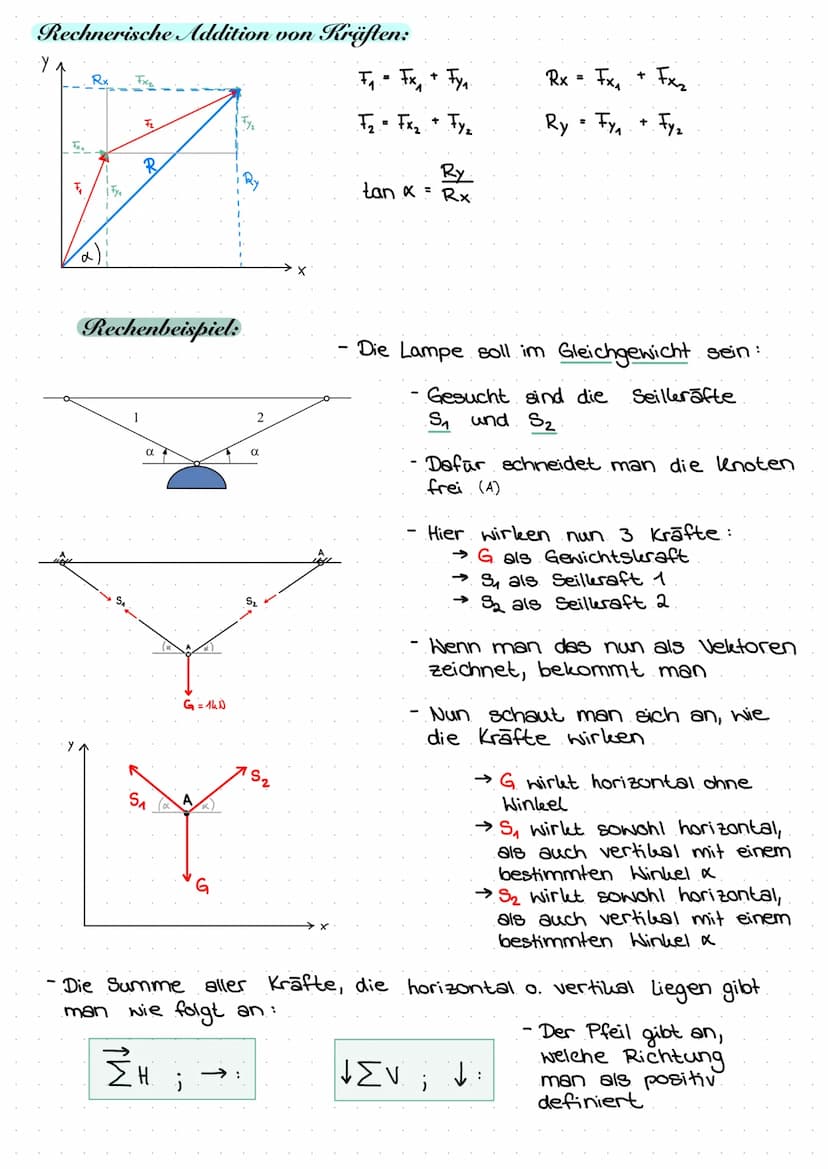 Rechnerische Addition von Kräften:
y
Rx
Fx₂
F₁ = Fx₁ + Fy₁
Rx = Fx₁ + Fx₂
F₂
Fy₂
F₂ = Fx₂ + Fy₂
Ry = Fy₁ + Fy₂
Fx₁
R
F₁
Fy₁
Ry
tan α = Ry / Rx
α
x
Rechenbeispiel:
- Die Lampe soll im Gleichgewicht sein:
1
2
α
α
- Gesucht sind die Seilkräfte
S₁ und S₂
- Dafür schneidet man die Knoten
frei (A)
A
A
S₁
S₂
α
A
α
G = 1kN
- Hier wirken nun 3 Kräfte:
→ G als Gewichtskraft
→ S₁ als Seilkraft 1
→ S₂ als Seilkraft 2
- Wenn man das nun als Vektoren
zeichnet, bekommt man
- Nun schaut man sich an, wie
die Kräfte wirken
y
S₁
α
A
α
S₂
G
x
→ G wirkt horizontal ohne
Winkel
→ S₁ wirkt sowohl horizontal,
als auch vertikal mit einem
bestimmten Winkel α
→ S₂ wirkt sowohl horizontal,
als auch vertikal mit einem
bestimmten Winkel α
- Die Summe aller Kräfte, die horizontal o. vertikal liegen gibt
man wie folgt an:
→ΣH ; → :
↓ΣV ; ↓ :
- Der Pfeil gibt an,
welche Richtung
man als positiv
definiert